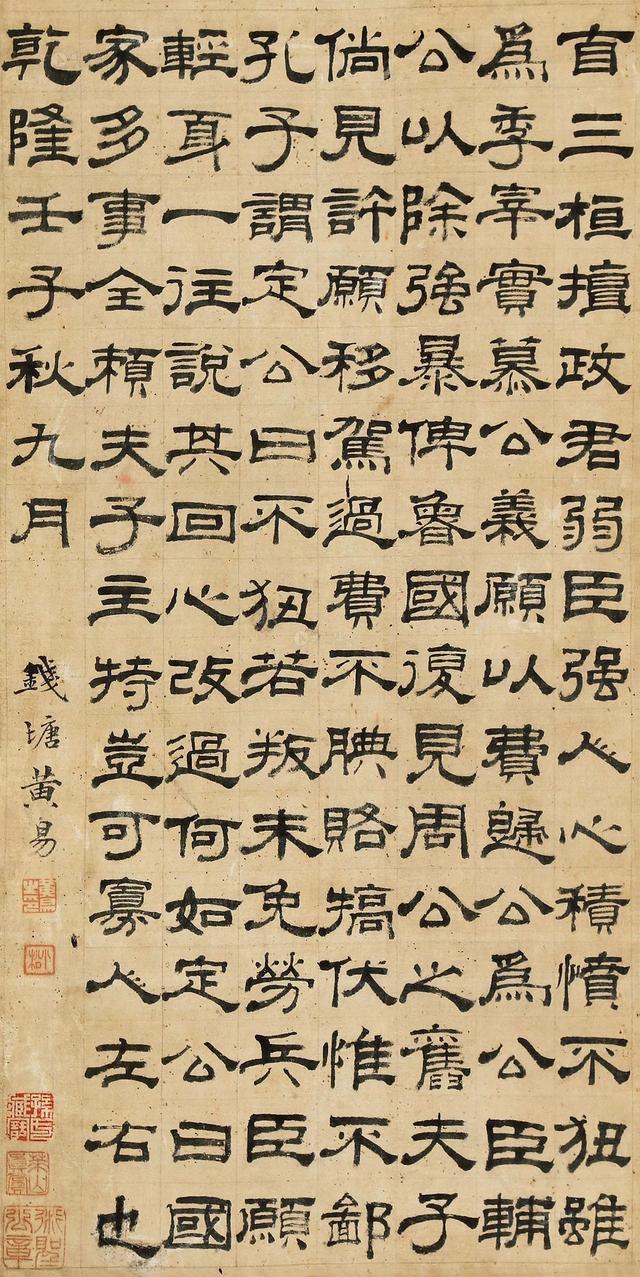 自三桓擅政君弱臣强人心積憤不狃雖
爲季宰實慕公義願以費歸公爲公臣輔
公以除強暴俾魯國復見周公之舊夫子
倘見許願移駕過費不腆賂犒伏惟不鄙
孔子謂定公曰不狃若叛未免勞兵臣願
輕身一往說其回心改過何如定公曰國
家多事全頼夫子主持豈可寡人左右也
乾隆壬子秋九月
錢塘黃易